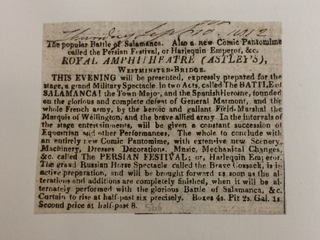 Thursday Sep 10. 1812
The popular Battle of Salamanca. Also a new Comic Pantomime
called the Persian Festival, or Harlequin Emperor, &c.
ROYAL AMPHITHEATRE (ASTLEY'S),
WESTMINSTER-BRIDGE.
THIS EVENING will be presented, expressly prepared for the
stage, a grand Military Spectacle. in two Acts, called The BATTLE of
SALAMANCA! the Town Major, and the Spanish Heroine, founded
on the glorious and complete defeat of General Marmont, and the
whole French army, by the heroic and gallant Field-Marshal the
Marquis of Wellington, and the brave allied army. In the intervals of
the stage entertainments, will be given a constant succession of
Equestrian and other Performances. The whole to conclude with
an entirely new Comic Pantomime, with extensive new Scenery,
Machinery, Dresses, Decorations, Music, Mechanical Changes,
&c. called The PERSIAN FESTIVAL; or, Harlequin Emperor.
The grand Russian Horse Spectacle, called the Brave Cossack, is in
active preparation, and will be brought forward as soon as the al-
terations and additions are completely finished, when it will be al-
ternately performed with the glorious Battle of Salamanca, &c.
Curtain to rise at half-past six precisely. Boxes 4s. Pit 2s. Gal. 1s.
Second price at half-past 8.